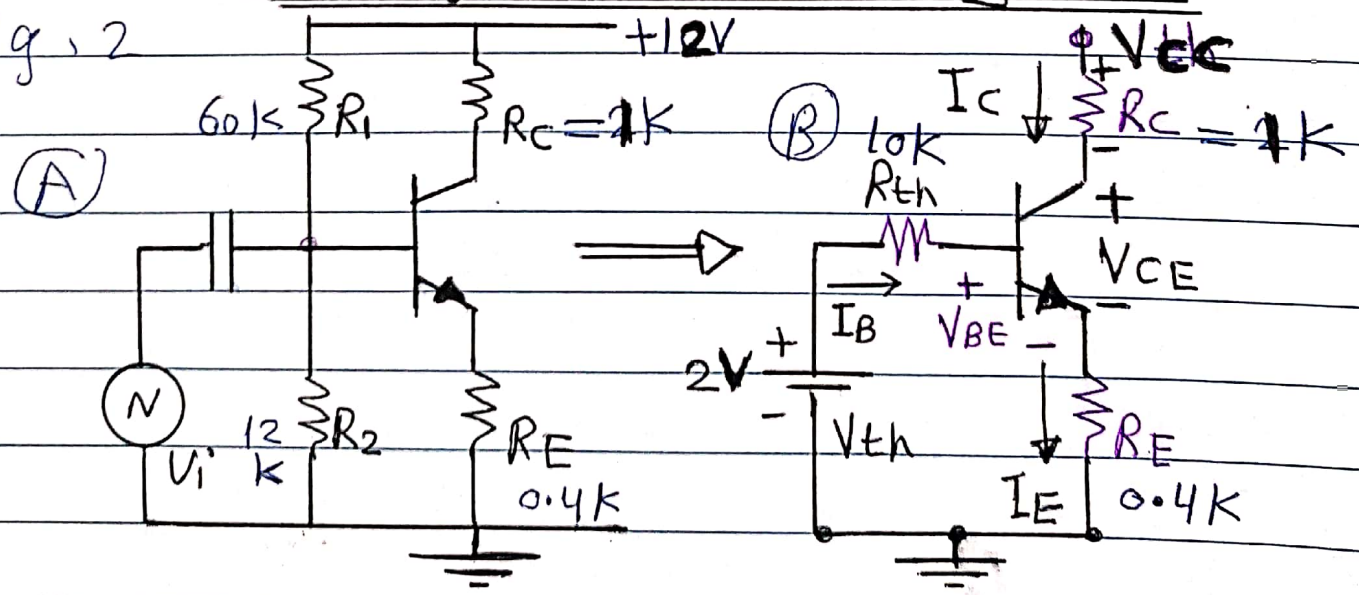 g, 2
+12V
60k R1
RC = 1K
A
N
Vi
12 k R2
RE
0.4K
B
VCC
+
IC
RC = 1K
-
10K
Rth
+
VCE
-
IB
+
VBE
-
2V
+
-
Vth
IE
RE
0.4K